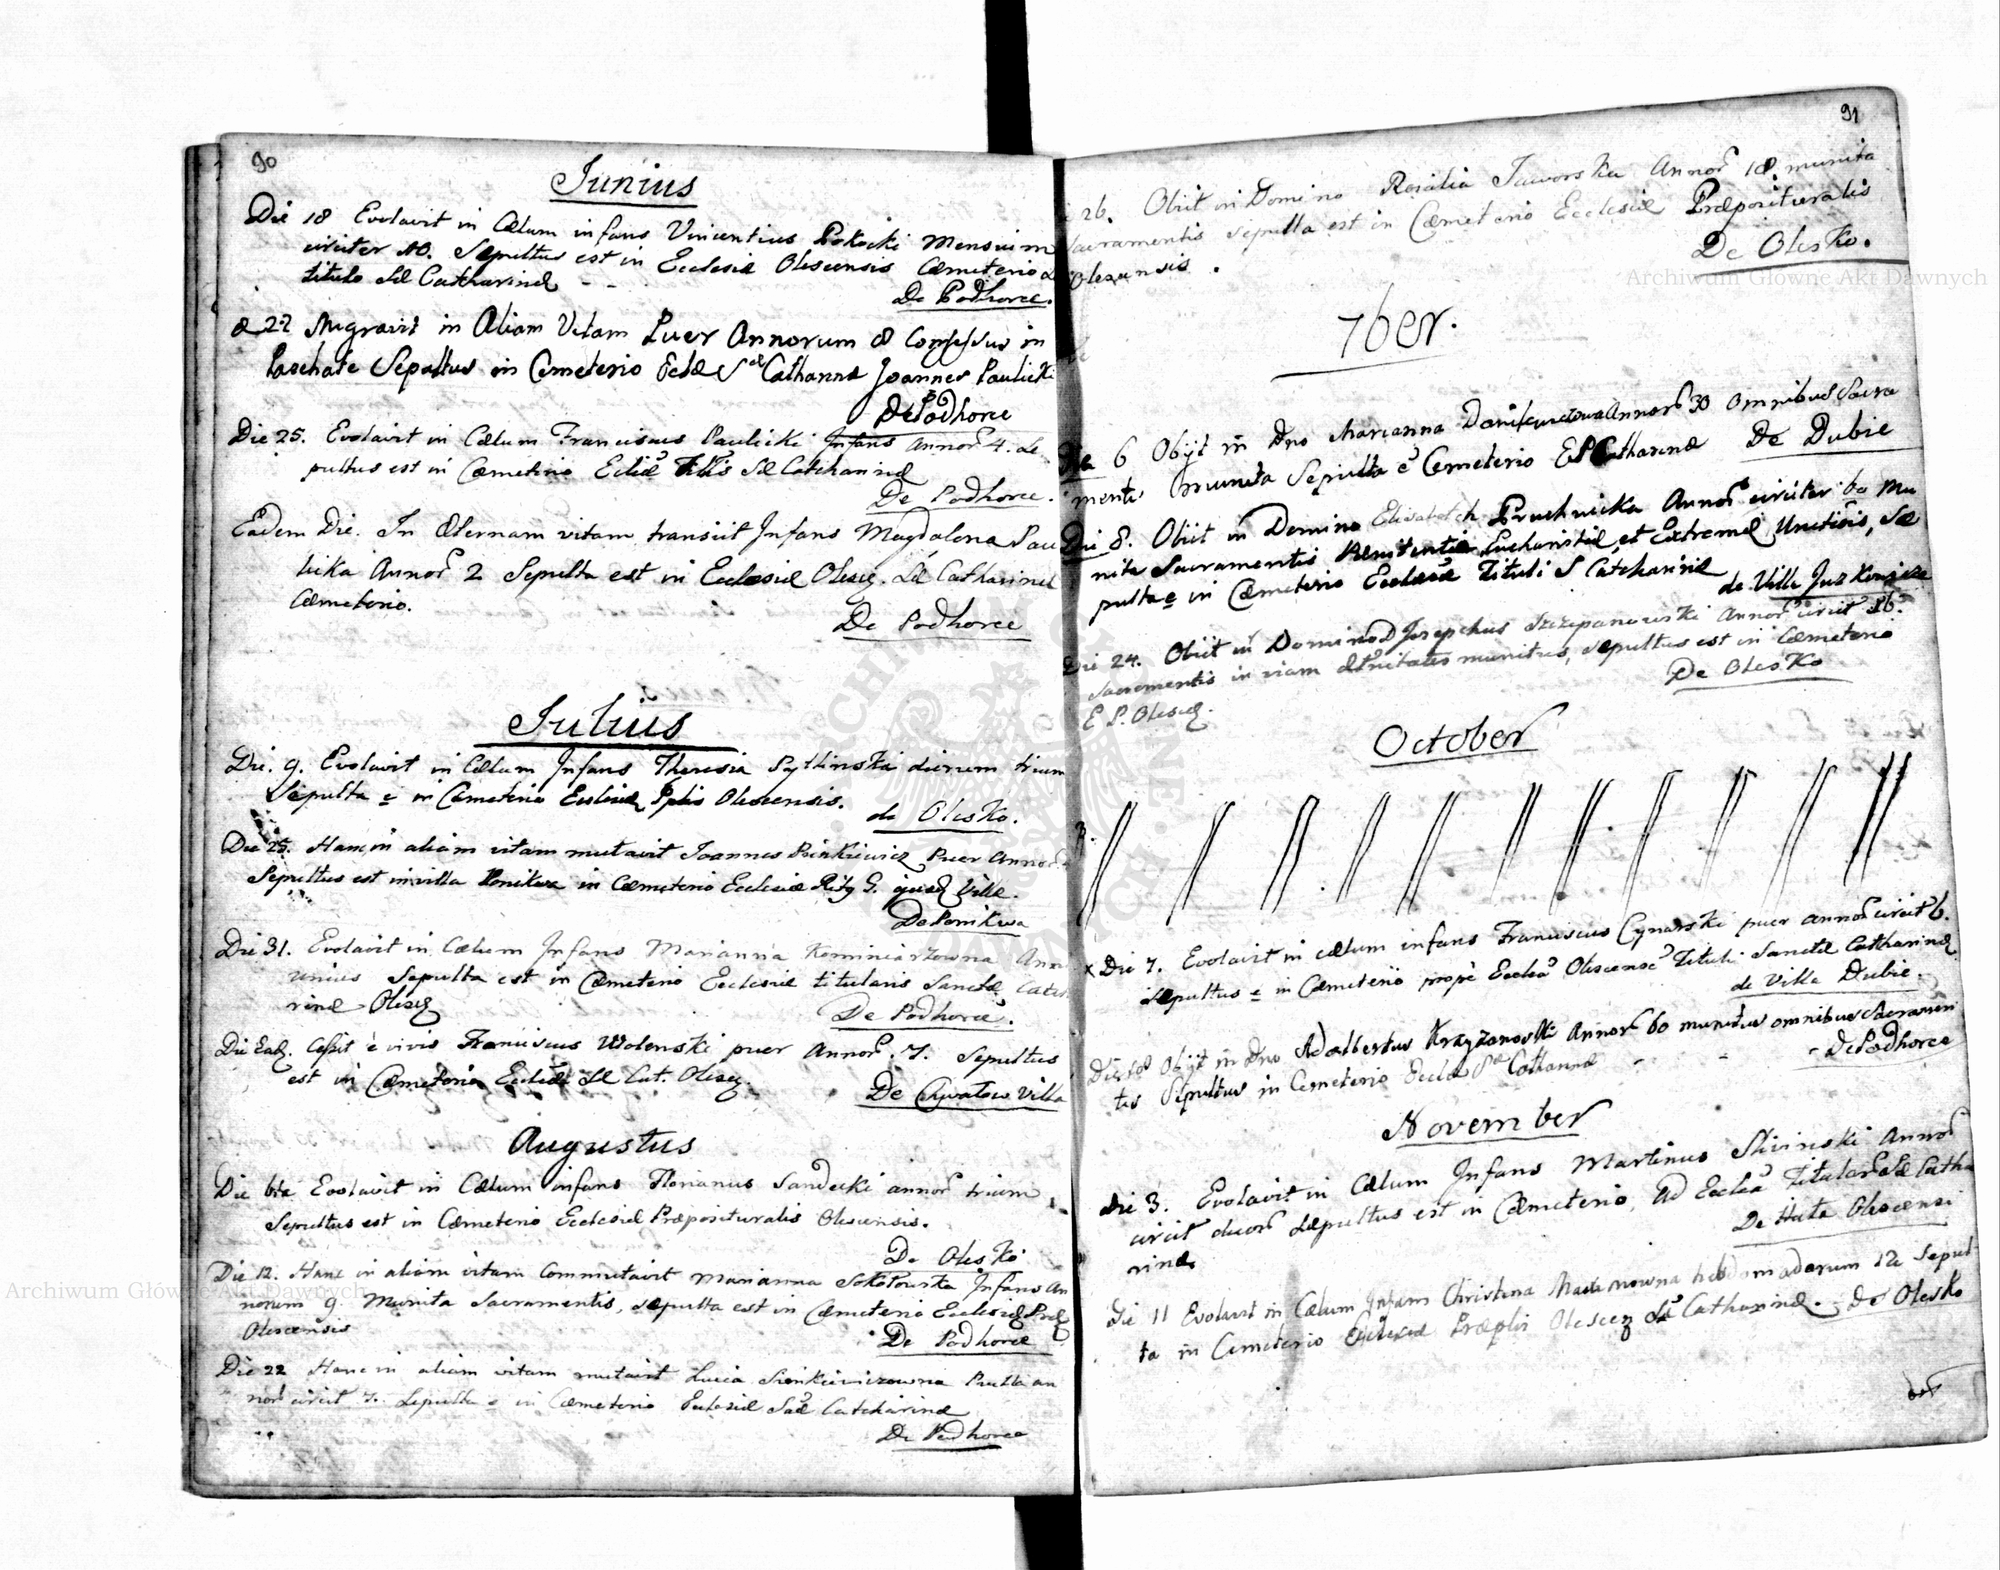 90
Junius
Die 18 Evolavit in Cælum infans Vincentius Pokocki Mensium
circiter 10. Sepultus est in Ecclesiæ Olescensis Cæmeterio
titulo Sæ Catharinæ - -
De Podhorce.
d 22 Migravit in Aliam Vitam Puer Annorum 8 Confessus in
Paschate Sepultus in Cemeterio Eclæ Sae Catharina Joannes Paulicki
De Podhorce
Die 25. Evolavit in Cælum Franciscus Paulicki Infans Annor 4. Se
pultus est in Cæmeterio Ecliæ Titlis Sæ Catcharinæ
De Podhorce.
Eadem Die. In Æternam vitam transiit Infans Magdalena Pau
licka Annor 2 Sepulta est in Ecclesiæ Olescz. Sæ Catharinæ
Cæmeterio.
De Podhorce
Julius
Die. 9. Evolavit in Cælum Infans Theresia dierum trium
Sepulta e in Cæmeterio Ecclesiæ Pplis Olescensis.
de Olesko.
Die 25. Hanc in aliam vitam mutavit Joannes Puer Annor
Sepultus est in villa Ponikwa in Cæmeterio Ecclesiæ Ritg G. ejusd Villæ.
De Ponikwa
Die 31. Evolavit in Cælum Infans Marianna Kominiarzowna Ann
unius Sepulta est in Cæmeterio Ecclesiæ titularis Sanctæ Catch
rinæ Olescz
De Podhorce.
Die Ead. Cessit e vivis Franciscus Wolenski puer Annor. 7. Sepultus
est in Cæmeterio Ecclæ Sæ Cat. Olescz.
De Villa
Augustus
Die 6ta Evolavit in Cælum infans Florianus Sandecki annor trium
Sepultus est in Cæmeterio Ecclesiæ Præposituralis Olescensis.
De Olesko
Die 12. Hanc in aliam vitam Commutavit Marianna Sokołowska Infans An
norum 9. Munita Sacramentis, sepulta est in Cæmeterio Ecclesiæ Præ
Olescensis
De Podhorce
Die 22 Hanc in aliam vitam mutavit Lucia Sienkiewiczowna Puella an
nor circit 7. Sepulta e in Cæmeterio Eclesiæ Sæ Catcharinæ
De Podhorce
91
26. Obiit in Domino Rosalia Jaworska Annor 18. munita
Sacramentis sepulta est in Cæmeterio Ecclesiæ Præposituralis
Olescensis.
De Olesko.
7ber.
Die 6 Obijt in Dno Marianna Annor 30 Omnibus Sacra
mentis munita Sepulta e Cemeterio Catharinæ De Dubie
Die 8. Obiit in Domino Elisabeth Pruchnicka Annor circiter 60 Mu
nita Sacramentis Penitentiæ, Euchanistiæ, et Extremæ Unctionis, Se
pulta e in Cæmeterio Ecclesiæ Tituli S Catcharinæ
de Villa
Die 24. Obiit in Domino D Josephus Szczepanowski Annor circit
Sacramentis in viam æternitatis munitus, sepultus est in Cæmeterio
E P. Olescz.
De Olesko
October
x Die 7. Evolavit in cælum infans Franciscus Cynarski puer annor circit 6.
sepultus e in Cæmeterio prope Ecclæ Olescensæ Tituli Sanctæ Catharinæ
de Villa Dubie.
Die 18 Obijt in Dno Adalbertus Krzyżanoski Annor 60 munitus omnibus Sacramen
tis Sepultus in Cemeterio Ecclæ Sæ Catharinæ - - - De Podhorce
November
Die 3. Evolavit in Cælum Infans Martinus Sliwinski Annor
circit duor sepultus est in Cæmeterio, ad Ecclæ Titular Sæ Catha
rinæ
De Huta Olescensi
Die 11 Evolavit in Cælum Infans Christina hebdomadarum 12 Sepul
ta in Cemeterio Ecclesiæ Præplis Olescen Sæ Catharinæ. - De Olesko
Archiwum Główne Akt Dawnych
Archiwum Główne Akt Dawnych